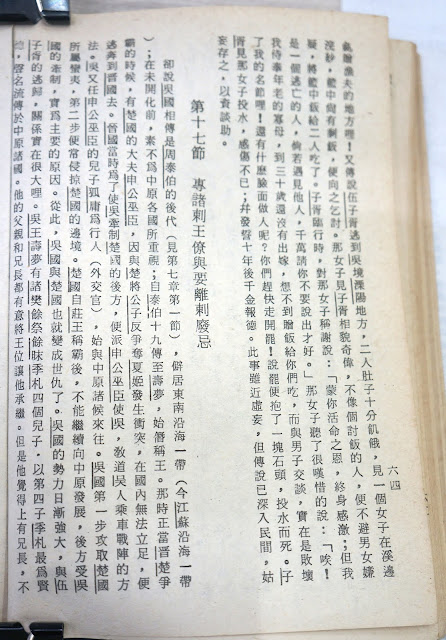 六四
贈漁夫的地方哩！又傳說伍子胥逃到吳境溧陽地方，二人肚子十分飢餓，見一個女子在溪邊
浣紗，籃中尚有剩飯，便向之乞討。那女子見子胥相貌奇偉，不像個討飯的人，便不避男女嫌
疑，將籃中飯給二人吃了。子胥臨行時，對那女子稱謝說：「蒙你活命之恩，終身感激；但我
是一個逃亡的人，倘若遇見他人，千萬請你不要說出才好。」那女子聽了很嘆惜的說：「唉！
我侍奉年老的寡母，到三十歲還沒有出嫁，想不到贈飯給你們吃，而與男子交談，實在是敗壞
了我的名節哩！還有什麼臉面做人呢？你們趕快走開罷！說罷便抱了一塊石頭，投水而死。子
胥見那女子投水，感傷不已；幷發誓十年後千金報德。此事雖近虛妄，但傳說已深入民間，姑
妄存之，以資談助。
第十七節　專諸刺王僚與要離刺廢忌
卻說吳國相傳是周泰伯的後代（見第七章第一節），僻居東南沿海一帶（今江蘇沿海一帶
）；在未開化前，素不為中原各國所重視；自泰伯十九傳至壽夢，始僭稱王。那時正當晉楚爭
霸的時候，有楚國的大夫申公巫臣，因與楚將公子反爭奪夏姬發生衝突，在國內無法立足，便
逃奔到晉國去。晉國當時爲了使吳牽制楚國的後方，便派申公巫臣使吳，敎道吳人乘車戰陣的方
法。吳又任申公巫臣的兒子狐庸爲行人（外交官），始與中原諸候來往。吳國第一步攻取楚國
所屬蠻夷，第二步便常侵掠楚國的邊境。楚國自莊王稱霸後，不能繼續向中原發展，後方受吳
國的牽制，實爲主要的原因。從此，吳國與楚國也就變成世仇了。吳國的勢力日漸強大，與伍
子胥的逃歸，關係實在很大哩。吳王壽夢有諸樊餘祭餘昧季札四個兒子，以第四子季札最爲賢
德，聲名流傳於中原諸國。他的父親和兄長都有意將王位讓他承繼。但是他覺得上有兄長，不